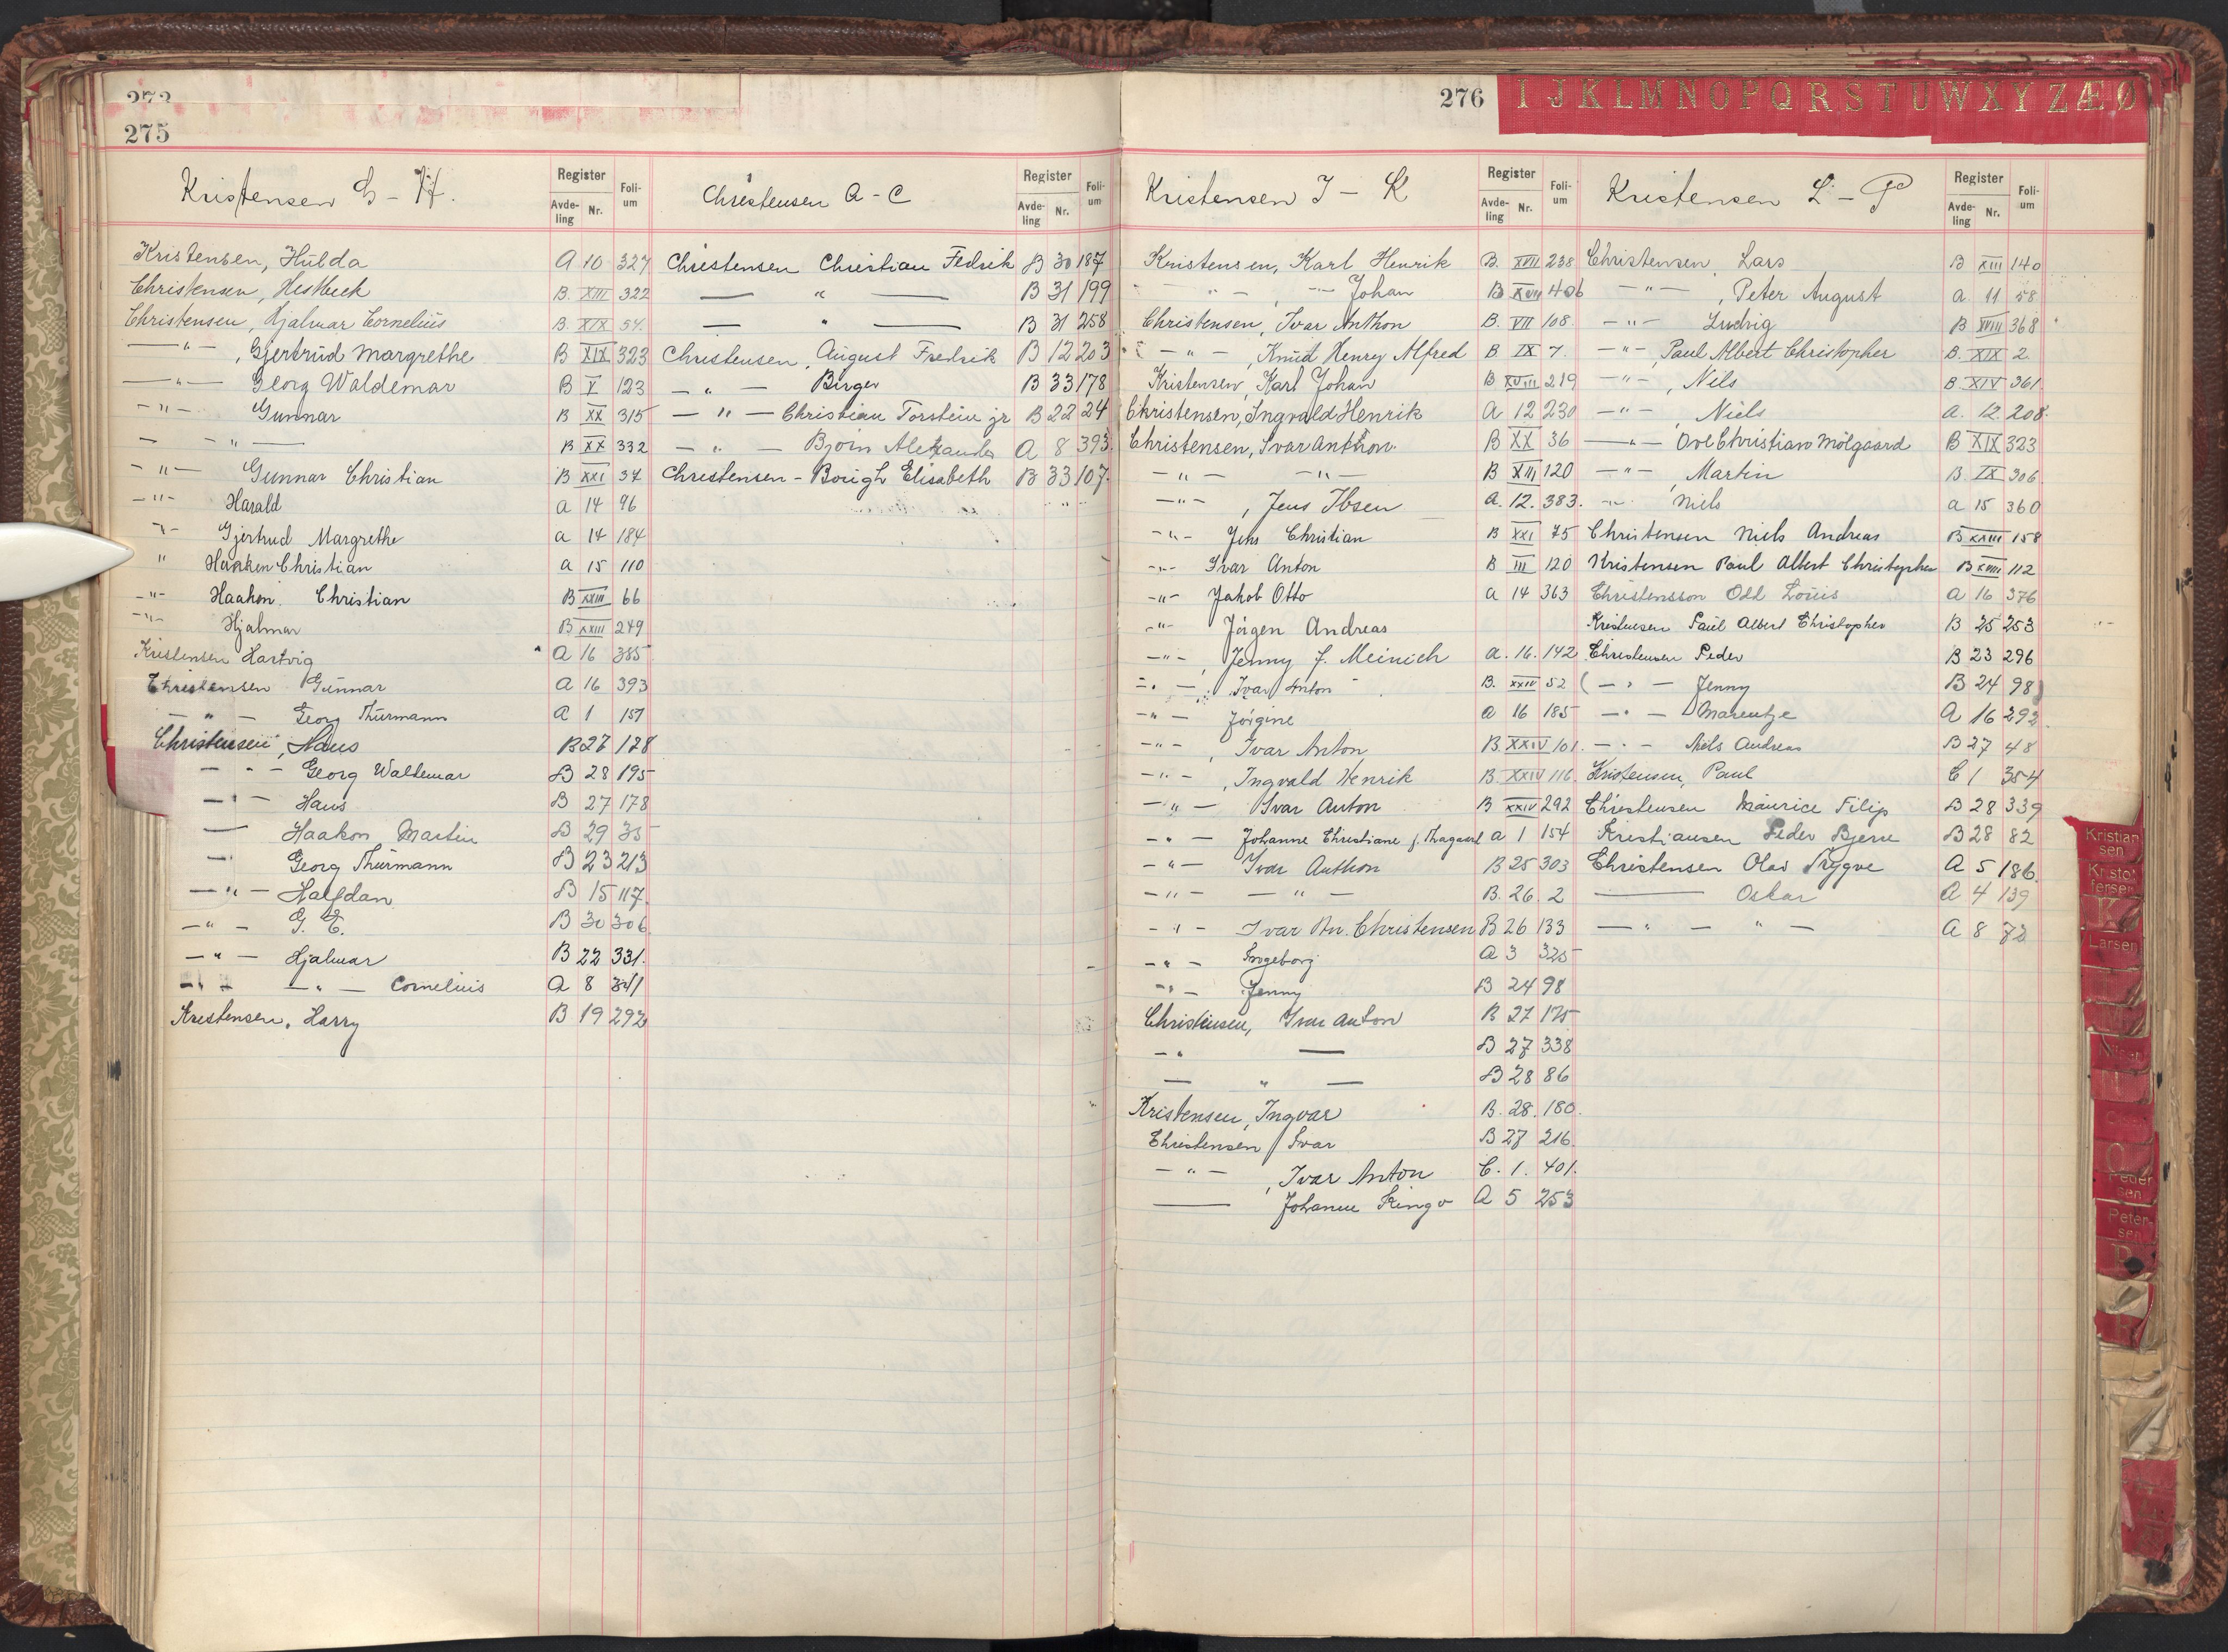 273
275
Kristensen G - H.
Register
Avde-ling Nr.
Foli-um
Kristensen, Hulda A 10 327
Christensen, Hestbeck B. XIII 322
Christensen, Hjalmar Cornelius B. XIX 54.
—"— , Gjertrud Margrethe B XIX 323
—"— Georg Waldemar B V 123
—"— Gunnar B XX 315
— -"- — B XX 332
—"— Gunnar Christian B XXI 37
—"— Harald a 14 96
—"— Gjertrud Margrethe a 14 184
" Haaken Christian a 15 110
—"— Haakon Christian B XXIII 66
—"— Hjalmar B XXIII 249
Kristensen Hartvig A 16 385
Christensen Gunnar A 16 393
—"— Georg Thurmann A 1 151
Christensen, Hans B 27 128
—"— Georg Waldemar B 28 195
—"— Hans B 27 178
— Haakon Martin B 29 35
— Georg Thurmann B 23 213
—"— Halfdan B 15 117.
—"— G. E. B 30 306
—"— Hjalmar B 22 331.
—"— —"— Cornelius A 8 341
Kristensen, Harry B 19 292
Christensen A - C
Register
Avde-ling Nr.
Foli-um
Christensen Christian Fedrik B 30 187
— " — B 31 199
— " — B 31 258
Christensen, August Fredrik B 12 203
— " — Birger B 33 178
— " — Christian Torstein jr B 22 24
— " — Bjørn Alexander A 8 393.
Christensen - Bough Elisabeth B 33 107.
276
I J K L M N O P Q R S T U W X Y Z Æ Ø
Kristensen I - K
Register
Avde-ling Nr.
Foli-um
Kristensen, Karl Henrik B. XVII 238
—"— , —"— Johan B XVII 406
Christensen, Ivar Anthon B. VII 108.
—"— , Knud Henry Alfred B IX 7.
Kristensen, Karl Johan B XVIII 219
Christensen, Ingvald Henrik A 12 230
Christensen, Ivar Anthon. B XX 36
—"— —"— B XIII 120
—"— , Jens Ibsen A. 12. 383.
—"— Jens Christian B XXI 75
—"— Ivar Anton B III 120
—"— Jakob Otto a 14 363
—"— Jørgen Andreas
—"— , Jenny f. Meinich a. 16. 142
—"— , Ivar Anton B. XXIV 52
—"— Jørgine a 16 185
—"— , Ivar Anton B. XXIV 101.
—"— , Ingvald Henrik B. XXIV 116.
—"— Ivar Anton B XXIV 292
—"— Johanne Christiane f. Thagaard a 1 154
—"— Ivar Anthon B 25 303
—"— —"— B. 26. 2
—"— Ivar An. Christensen B 26 133
—"— Ingeborg A 3 325
—"— Jenny B 24 98
Christensen, Ivar Anton B 27 175
—" — B 27 338
— " — B 28 86
Kristensen, Ingvar B. 28. 180.
Christensen, Ivar B 27 216.
—"— , Ivar Anton C. 1. 401.
— Johanne Kingo A 5 253
Kristensen L - P
Register
Avde-ling Nr.
Foli-um
Christensen, Lars B XIII 140
—"— , Peter August a. 11 58
—"— Ludvig B XVIII 368
—"— , Paul Albert Christopher B. XIX 2
—"— , Nils B XIV 361.
—"— , Niels A. 12. 208.
—"— Ove Christian Mølgaard B XIX 323
—"— , Martin B. IX 306
—"— Niels a 15 360
Christensen Niels Andreas B XXIII 158
Kristensen Paul Albert Christopher B XXIII 112
Christensson Odd Louis A 16 376
Kristensen Paul Albert Christopher B 25 253
Christensen Peder B 23 296
( — " — Jenny B 24 98)
— " — Marentze A 16 292
— " — Niels Andreas B 27 48
Kristensen, Paul C 1 354
Christensen Maurice Filip B 28 339
Kristiansen Peder Bjerre B 28 82
Christensen Olav Trygve A 5 186.
— Oskar A 4 139
— " — " — A 8 73
Kristian
sen
Kristof
fersen
K
Larsen
Peder
sen
Peter-
sen
P